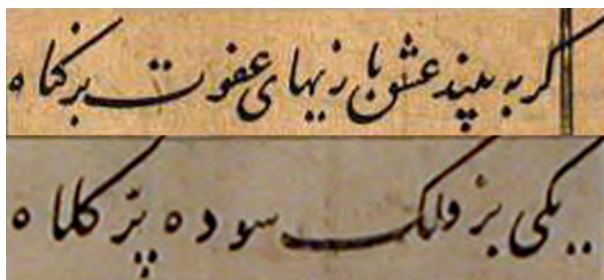 کر به بیند عشق بازیهای عفوت بر کناه
یکی بر فلک سوده پر کلاه